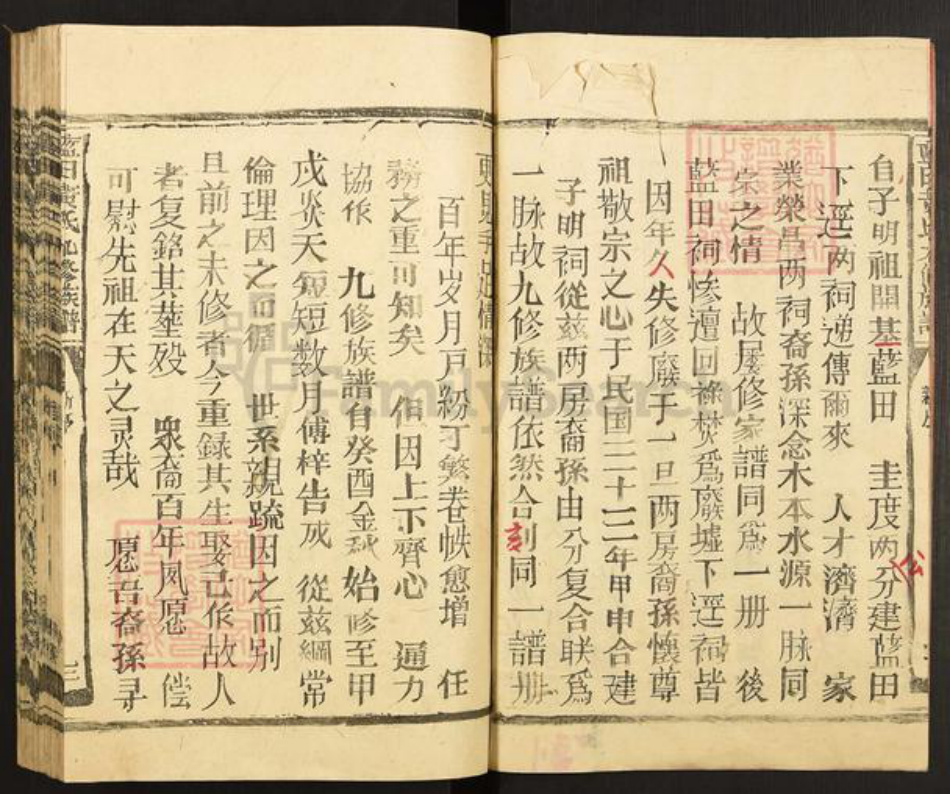 自子明祖開基藍田 圭度两公分建藍田
下逕两祠递傳爾來 人才濟濟 家
業榮昌两祠裔孫深念木本水源一脉同
宗之情 故屡修家譜同爲一册 後
因年久失修廢于一旦两房裔孫懷尊
藍田祠惨遭回祿焚爲廢墟下逕祠皆
祖敬宗之心于民国三十三年甲申合建
子明祠從兹两房裔孫由分复合联爲
一脉故九修族譜依然合刻同一譜册
更見手足情深
百年岁月戸粉丁繁卷帙愈增 任
務之重可知矣 但因上下齊心 通力
協作 九修族譜自癸酉金秋始修至甲
戍炎天短短数月傅梓告成 從兹綱常
倫理因之而循 世系親疏因之而别
且前之未修者今重録其生娶已作故人
者复銘其塟殁 衆裔百年夙愿 偿
可慰先祖在天之灵哉 愿吾裔孫寻
藍田黄氏九修族譜
三
FamilySearch